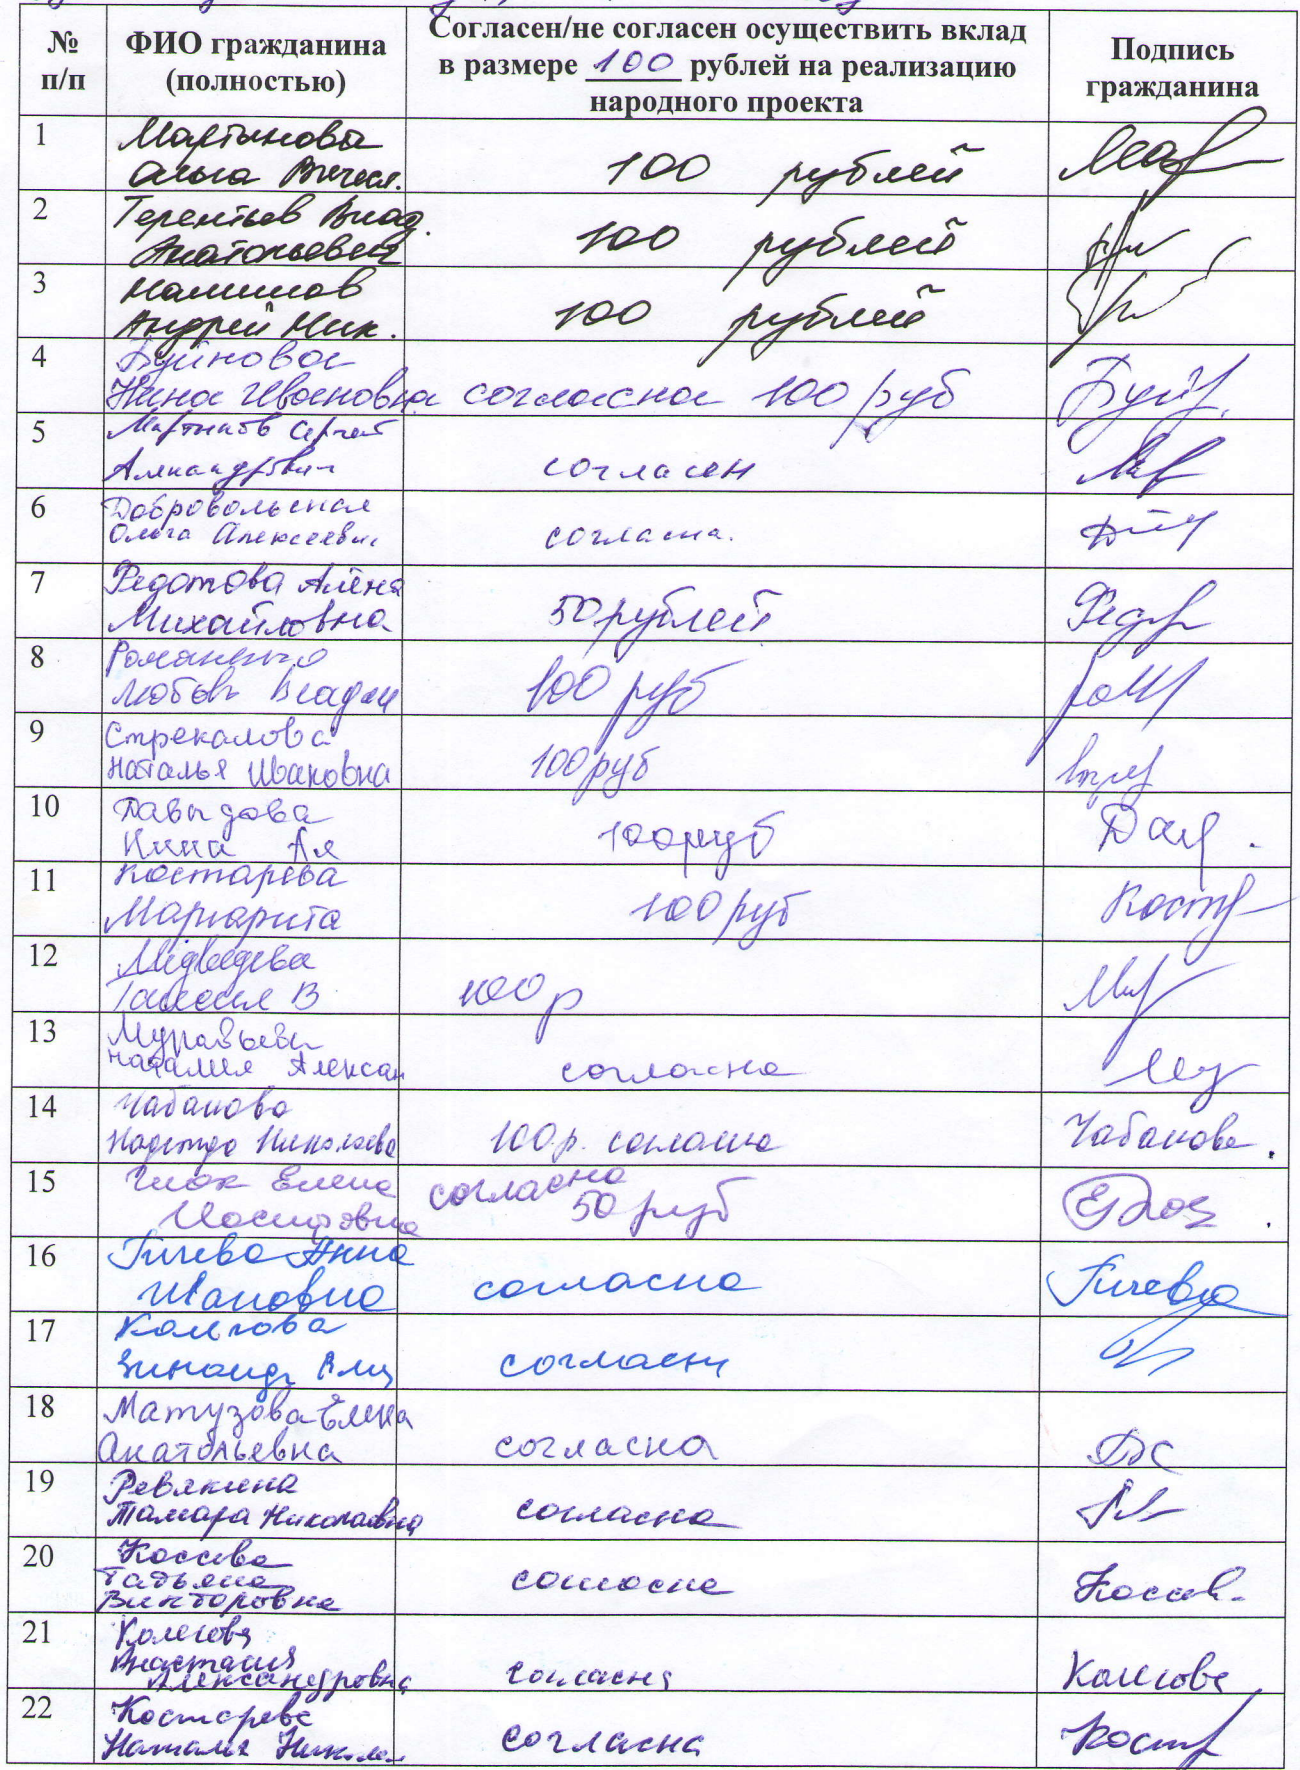 №
п/п
ФИО гражданина
(полностью)
Согласен/не согласен осуществить вклад
в размере 100 рублей на реализацию
народного проекта
Подпись
гражданина
1
Мартынова
Ольга Вячесл.
100 рублей
2
Терентьев Влад.
Анатольевич
100 рублей
3
Налимов
Андрей Ник.
100 рублей
4
Буйновá
Нина Ивановна
согласна 100 руб
5
Мартынов Сергей
Александрович
согласен
6
Добровольская
Ольга Алексеевн
согласна.
7
Федотова Алёна
Михайловна
50 рублей
8
Любовь Владим
100 руб
9
Стрекалова
Наталья Ивановна
100 руб
10
Давыдова
Нина
100 руб
Дав.
11
Костарева
Маргарита
100 руб
Кост
12
Медведева
В
100 р
13
Муравьева
Наталия Алексан
согласна
14
Чабанова
Надежда Николаевна
100 р. согласна
Чабанова.
15
Елена
Иосифовна
согласна
50 руб
16
Гичева Анна
Ивановна
согласна
Гичева
17
Колегова
Зинаида
согласна
18
Матузова Елена
Анатольевна
согласна
19
Ревякина
Тамара Николаевна
согласна
20
Косева
Татьяна
Викторовна
согласна
21
Колегова
Анастасия
Александровна
согласна
Колегова
22
Костарева
Наталья Никол
согласна
Кост